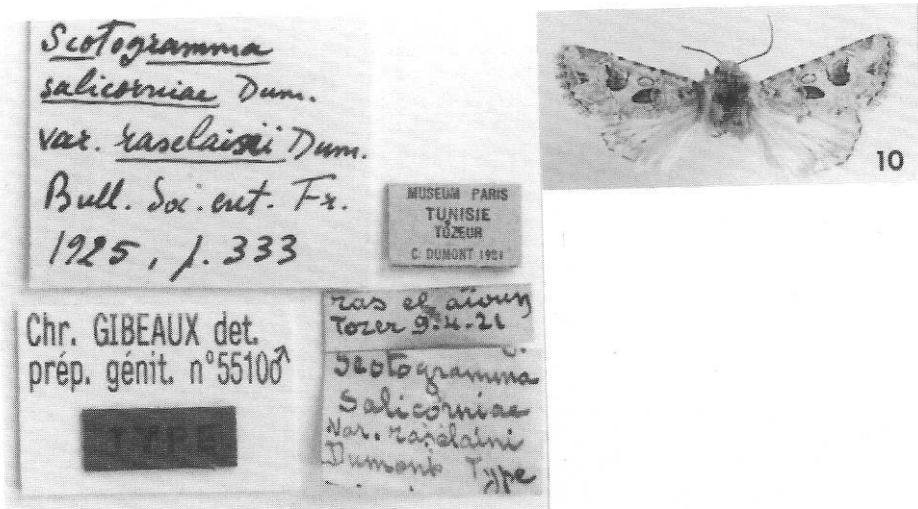 Scotogramma
salicorniae Dum.
var. raselaini Dum.
Bull. Soc. ent. Fr.
1925, p. 333
MUSEUM PARIS
TUNISIE
TOZEUR
C. DUMONT 1921
10
Chr. GIBEAUX det.
prép. génit. n°5510♂
TYPE
ras el aïoun
Tozer 9-4-21
Scotogramma
Salicorniae
Var. raselaini
Dumont Type